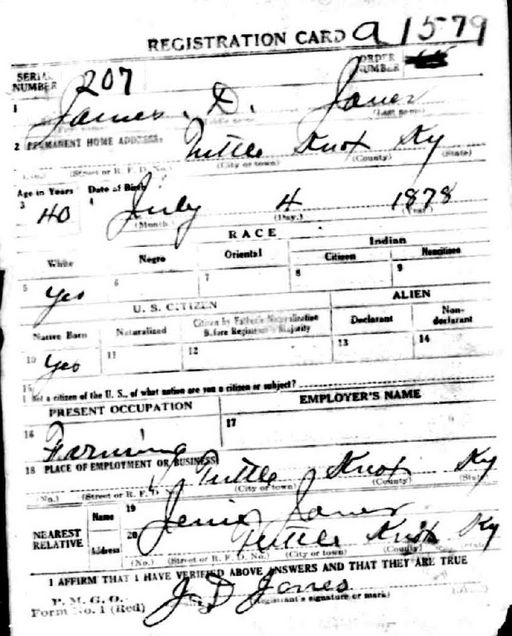 REGISTRATION CARD a 1579
SERIAL NUMBER 207 ORDER NUMBER
1 James D. Jones
2 PERMANENT HOME ADDRESS: Tuttle Knox Ky
(Street or R. F. D. No.) (City or town) (County) (State)
Age in Years Date of Birth
3 40 4 July 4 1878
(Month) (Day.) (Year)
RACE
White Negro Oriental Indian
Citizen Noncitizen
5 Yes 6 7 8 9
U. S. CITIZEN ALIEN
Native Born Naturalized Citizen by Father's Naturalization Before Registrant's Majority Declarant Non-declarant
10 Yes 11 12 13 14
15 If not a citizen of the U. S., of what nation are you a citizen or subject?
PRESENT OCCUPATION EMPLOYER'S NAME
16 Farming 17
18 PLACE OF EMPLOYMENT OR BUSINESS: Tuttle Knox Ky
(No.) (Street or R. F. D.) (City or town) (County) (State)
NEAREST RELATIVE
Name 19 Jones
Address 20 Tuttle Knox Ky
(No.) (Street or R. F. D. No.) (City or town) (County)
I AFFIRM THAT I HAVE VERIFIED ABOVE ANSWERS AND THAT THEY ARE TRUE
P. M. G. O.
Form No. 1 (Red) J D Jones
(Registrant's signature or mark)